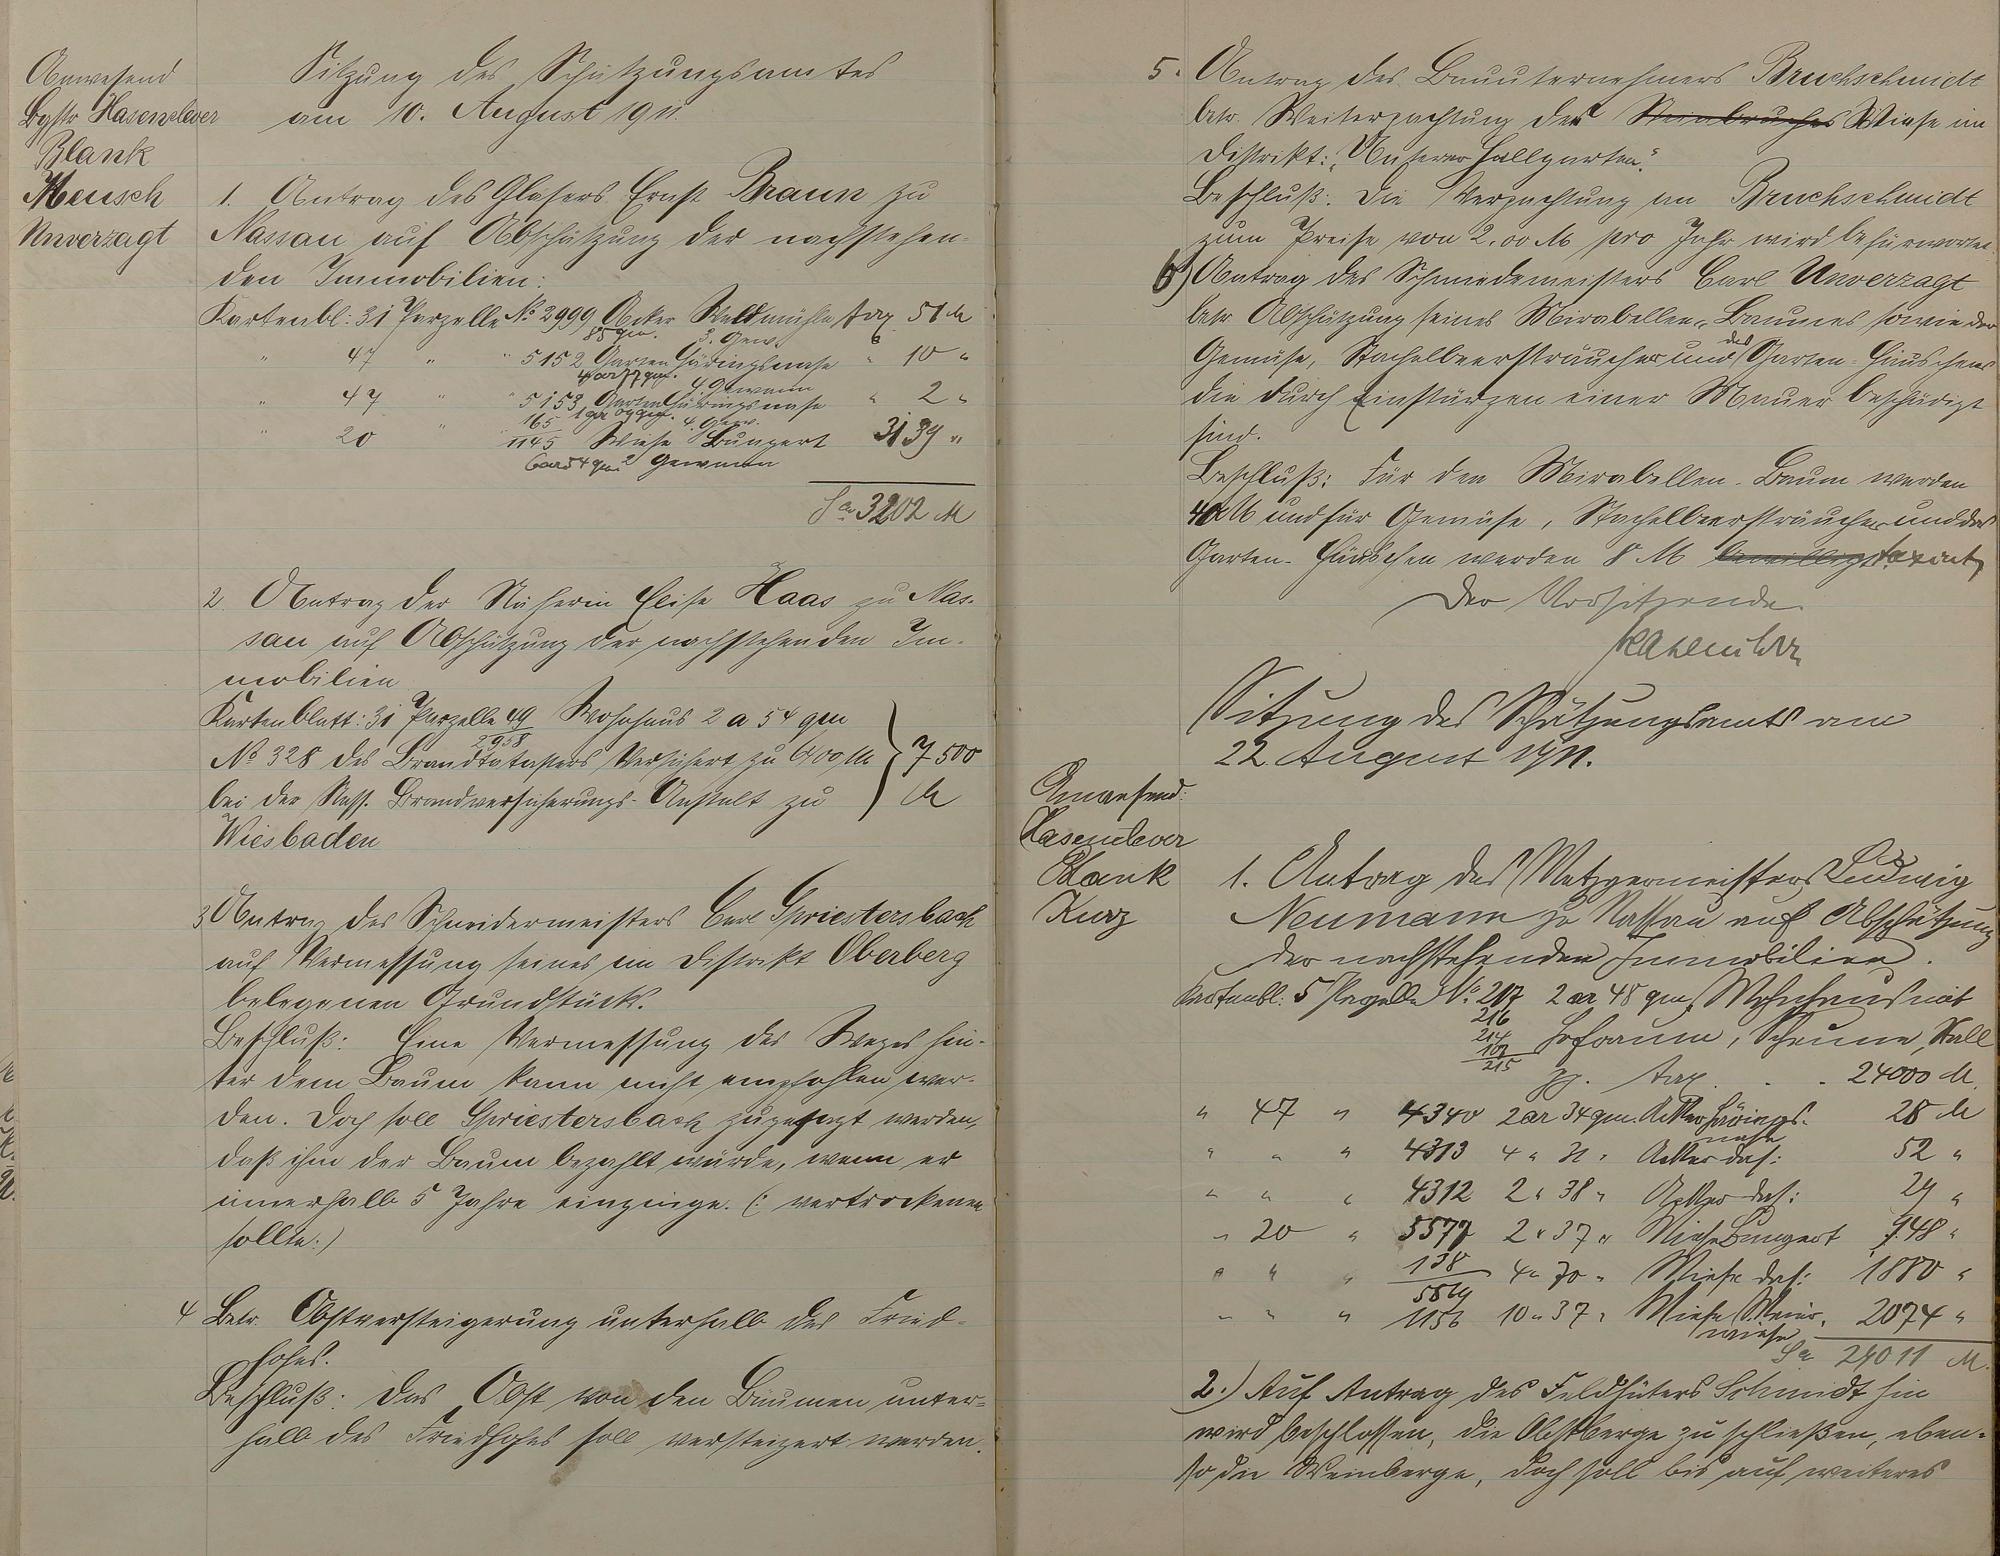 Anwesend
Bgstr Hasenclever
Blank
Heusch
Unverzagt
Sitzung des Schätzungsamtes
am 10. August 1911.
1. Antrag des Glasers Ernst Braun zu
Nassau auf Abschätzung der nachstehen-
den Immobilien:
Kartenbl: 31 Parzelle No 2999 Acker Waldmühle Tax 51 M
85 qm. 3. Gew.
" 47 " " 5152 Garten Häringsnase " 10 "
4 ar 77 qm. 4 Gewann
" 47 " " 5153 Garten Häringsnase " 2 "
1 ar 09 qm. 4. Gew.
" 20 " " 165/1145 Wiese Bungert 3139 "
6 ar 54 qm 2 Gewann
Sa 3202 M
2. Antrag der Näherin Elise Haas zu Nas-
sau auf Abschätzung der nachstehenden Im-
mobilien
Kartenblatt: 31 Parzelle 49/2958 Wohnhaus 2 a 54 qm
No 328 des Brandkatasters versichert zu 6400 M
bei der Nass. Brandversicherungs-Anstalt zu
Wiesbaden
7500
M
3 Antrag des Schneidermeisters Carl Spriestersbach
auf Vermessung seines im Distrikt Oberberg
belegenen Grundstücks.
Beschluß: Eine Vermessung des Weges hin-
ter dem Baum kann nicht empfohlen wer-
den. Doch soll Spriestersbach zugesagt werden,
daß ihm der Baum bezahlt würde, wenn er
innerhalb 5 Jahre einginge. (: vertrockenen
sollte:)
4 Betr. Obstversteigerung unterhalb des Fried-
hofes.
Beschluß: Das Obst von den Bäumen unter-
halb des Friedhofes soll versteigert werden.
5. Antrag des Bauunternehmers Bruchschmidt
betr. Weiterpachtung der Steinbruches Wiese im
Distrikt: "Unterer Hallgarten".
Beschluß: Die Verpachtung an Bruchschmidt
zum Preise von 2.00 M pro Jahr wird befürwortet.
6) Antrag des Schmiedemeisters Carl Unverzagt
betr Abschätzung seines Mirabellen-Baumes sowie der
Gemüse, Stachelbeersträucher und des Garten-Häuschens
die durch Einstürzen einer Mauer beschädigt
sind.
Beschluß: Für den Mirabellen-Baum werden
40 M und für Gemüse, Stachelbeersträucher und das
Garten-Häuschen werden 8 M bewilligt taxiert.
Der Vorsitzende
Hasenclever
Sitzung des Schätzungsamts am
22. August 1911.
Anwesend:
Hasenclever
Blank
Kurz
1. Antrag des Metzgermeisters Ludwig
Neumann zu Nassau auf Abschätzung
der nachstehenden Immobilien.
Kartenbl: 5 Parzelle No: 217 2 ar 48 qm, Wohnhaus mit
216
214
Hofraum, Scheune, Stall
215
pp. Tax . . . 24000 M.
" 47 " 4340 2 ar 34 qm. Acker Härings- 28 M
nase
" " " 4313 4 " 31 " Acker das: 52 "
" " " 4312 2 " 38 " Acker das: 29 "
" 20 " 5577 2 " 37 " Wiese Bungert 948 "
" " " 138 4 " 70 " Wiese das: 1880 "
" " " 1156 10 " 37 " Wiese 2074 "
wiese
Sa 29011 M.
2.) Auf Antrag des Feldhüters Schmidt hin
wird beschlossen, die Obstberge zu schließen, eben-
so die Weinberge, doch soll bis auf weiteres